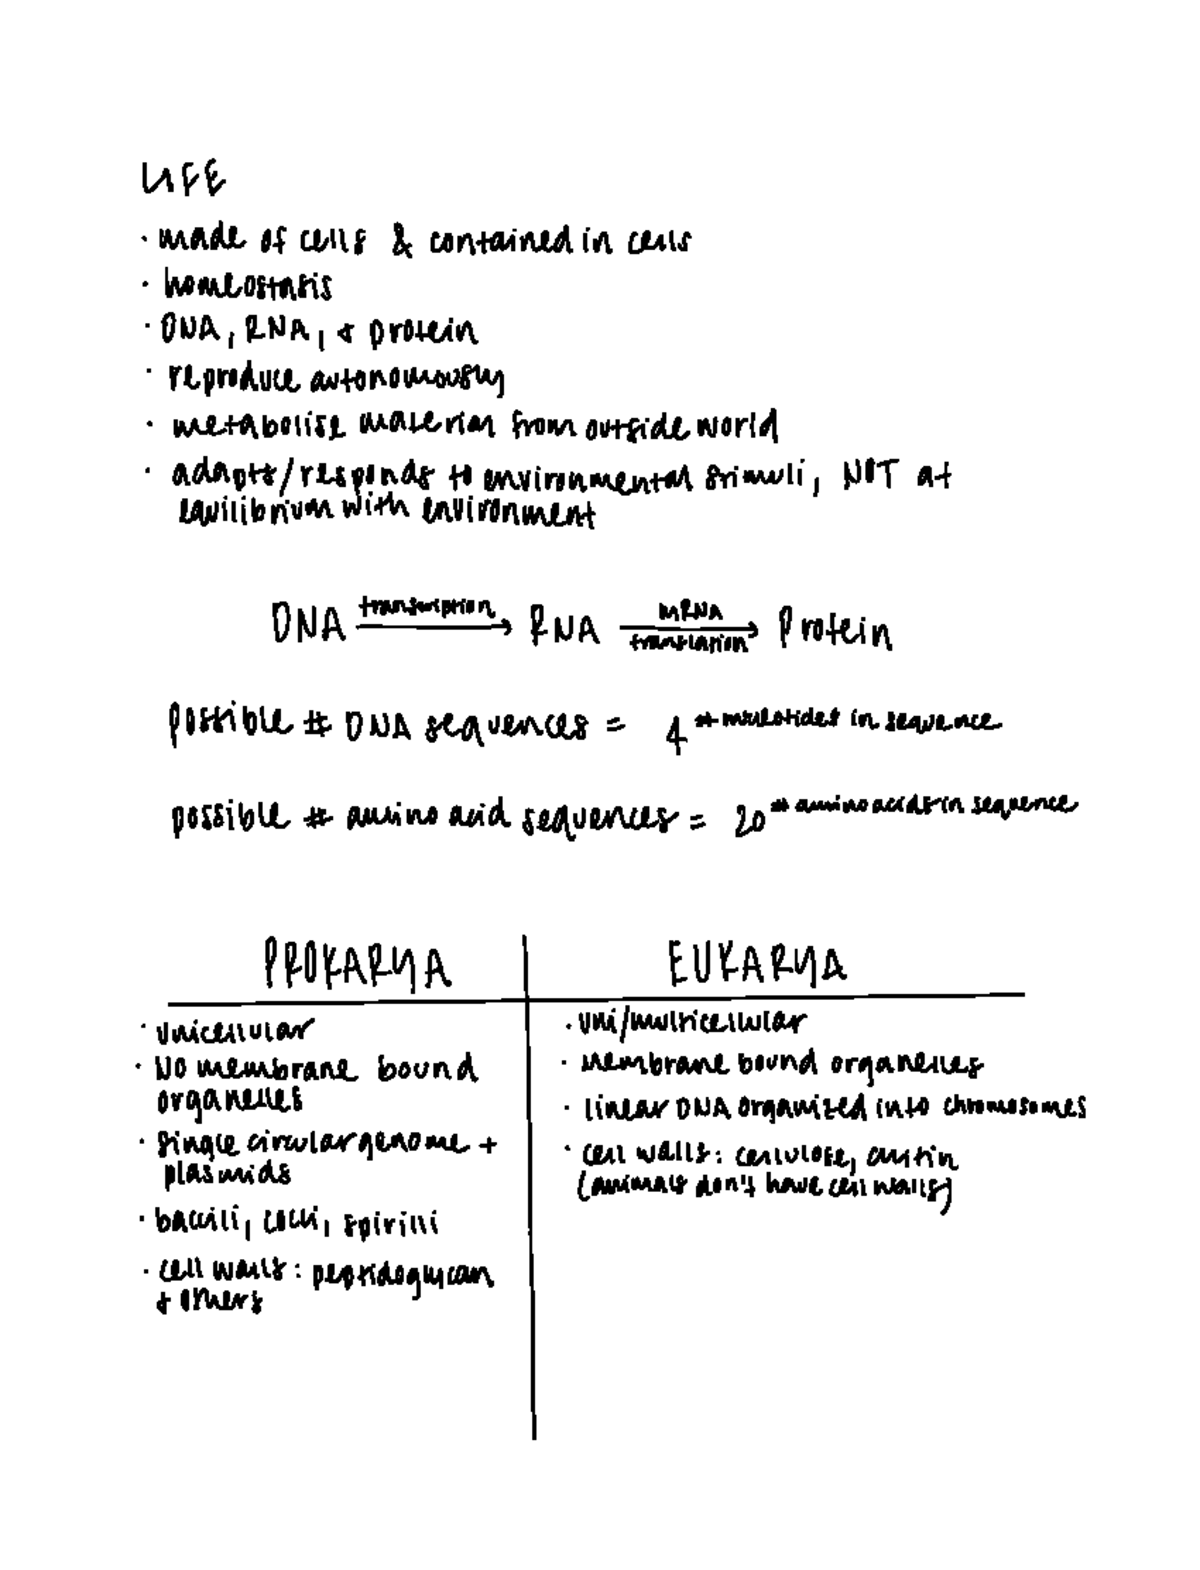 LIFE
· made of cells & contained in cells
· homeostasis
· DNA, RNA, & protein
· reproduce autonomously
· metabolise material from outside world
· adapts/responds to environmental stimuli, NOT at
equilibrium with environment
DNA transcription → RNA mRNA translation → Protein
possible # DNA sequences = 4 # nucleotides in sequence
possible # amino acid sequences = 20 # amino acids in sequence
PROKARYA
· unicellular
· NO membrane bound
organelles
· single circular genome +
plasmids
· bacilli, cocci, spirilli
· cell walls: peptidoglycan
+ others
EUKARYA
· uni/multicellular
· membrane bound organelles
· linear DNA organized into chromosomes
· cell walls: cellulose, chitin
(animals don't have cell walls)